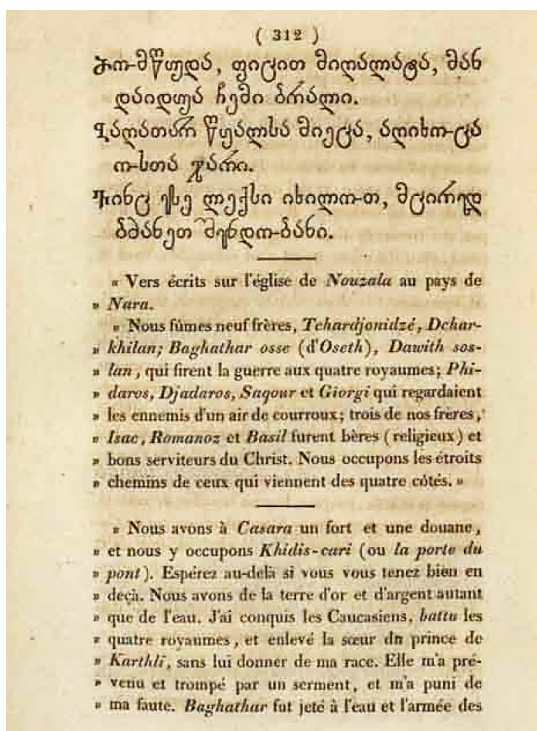 ( 312 )
მო-მწყუდა, ფიცით მიღალატა, მან
დაიდუა ჩემი ბრალი.
ბაღათარ წყალსა მიეცა, აღიხო-ცა
ო-სთა ჯარი.
ვინც ესე ლექსი იხილო-თ, მცირედ
ბმანეთ შენდო-ბანი.
» Vers écrits sur l'église de Nouzala au pays de
» Nara.
» Nous fûmes neuf frères, Tchardjonidzé, Dchar-
» khilan; Baghathar osse (d'Oseth), Dawith sos-
» lan, qui firent la guerre aux quatre royaumes; Phi-
» daros, Djadaros, Saqour et Giorgi qui regardaient
» les ennemis d'un air de courroux; trois de nos frères,
» Isac, Romanoz et Basil furent bères (religieux) et
» bons serviteurs du Christ. Nous occupons les étroits
» chemins de ceux qui viennent des quatre côtés. »
» Nous avons à Casara un fort et une douane,
» et nous y occupons Khidis-cari (ou la porte du
» pont). Espérez au-delà si vous vous tenez bien en
» deçà. Nous avons de la terre d'or et d'argent autant
» que de l'eau. J'ai conquis les Caucasiens, battu les
» quatre royaumes, et enlevé la sœur du prince de
» Karthli, sans lui donner de ma race. Elle m'a pré-
» venu et trompé par un serment, et m'a puni de
» ma faute. Baghathar fut jeté à l'eau et l'armée des